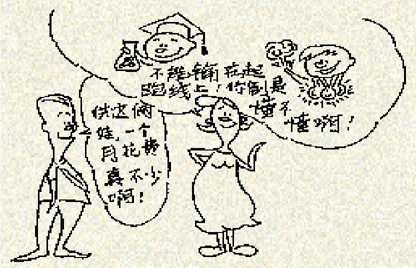 供这俩
娃,一个
月花费
真不少
啊!
不能输在起
跑线上!你倒是
懂不
懂啊!